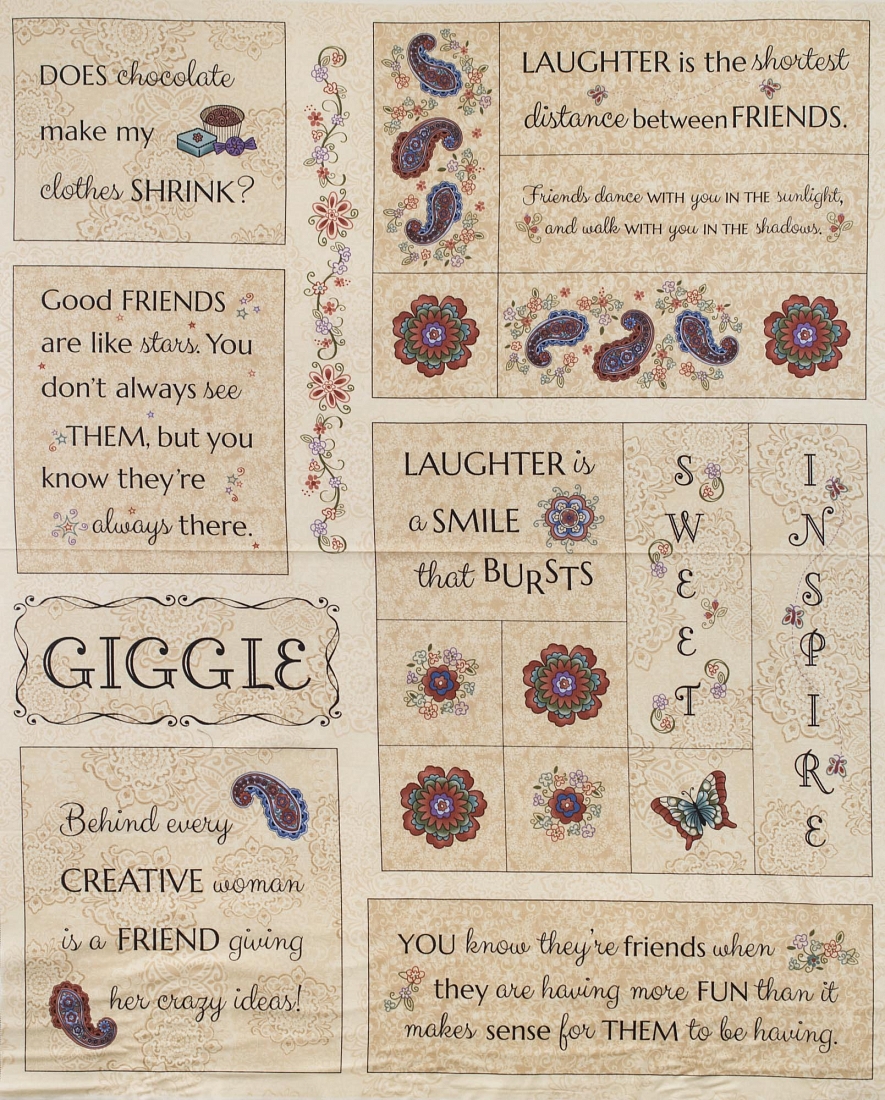 DOES chocolate
make my
clothes SHRINK?
Good FRIENDS
are like stars. You
don't always see
THEM, but you
know they're
always there.
GIGGLE
Behind every
CREATIVE woman
is a FRIEND giving
her crazy ideas!
LAUGHTER is the shortest
distance between FRIENDS.
Friends dance WITH you IN THE sunlight,
and walk WITH you IN THE shadows.
LAUGHTER is
a SMILE
that BURSTS
SWEET
INSPIRE
YOU know they're friends when
they are having more FUN than it
makes sense for THEM to be having.